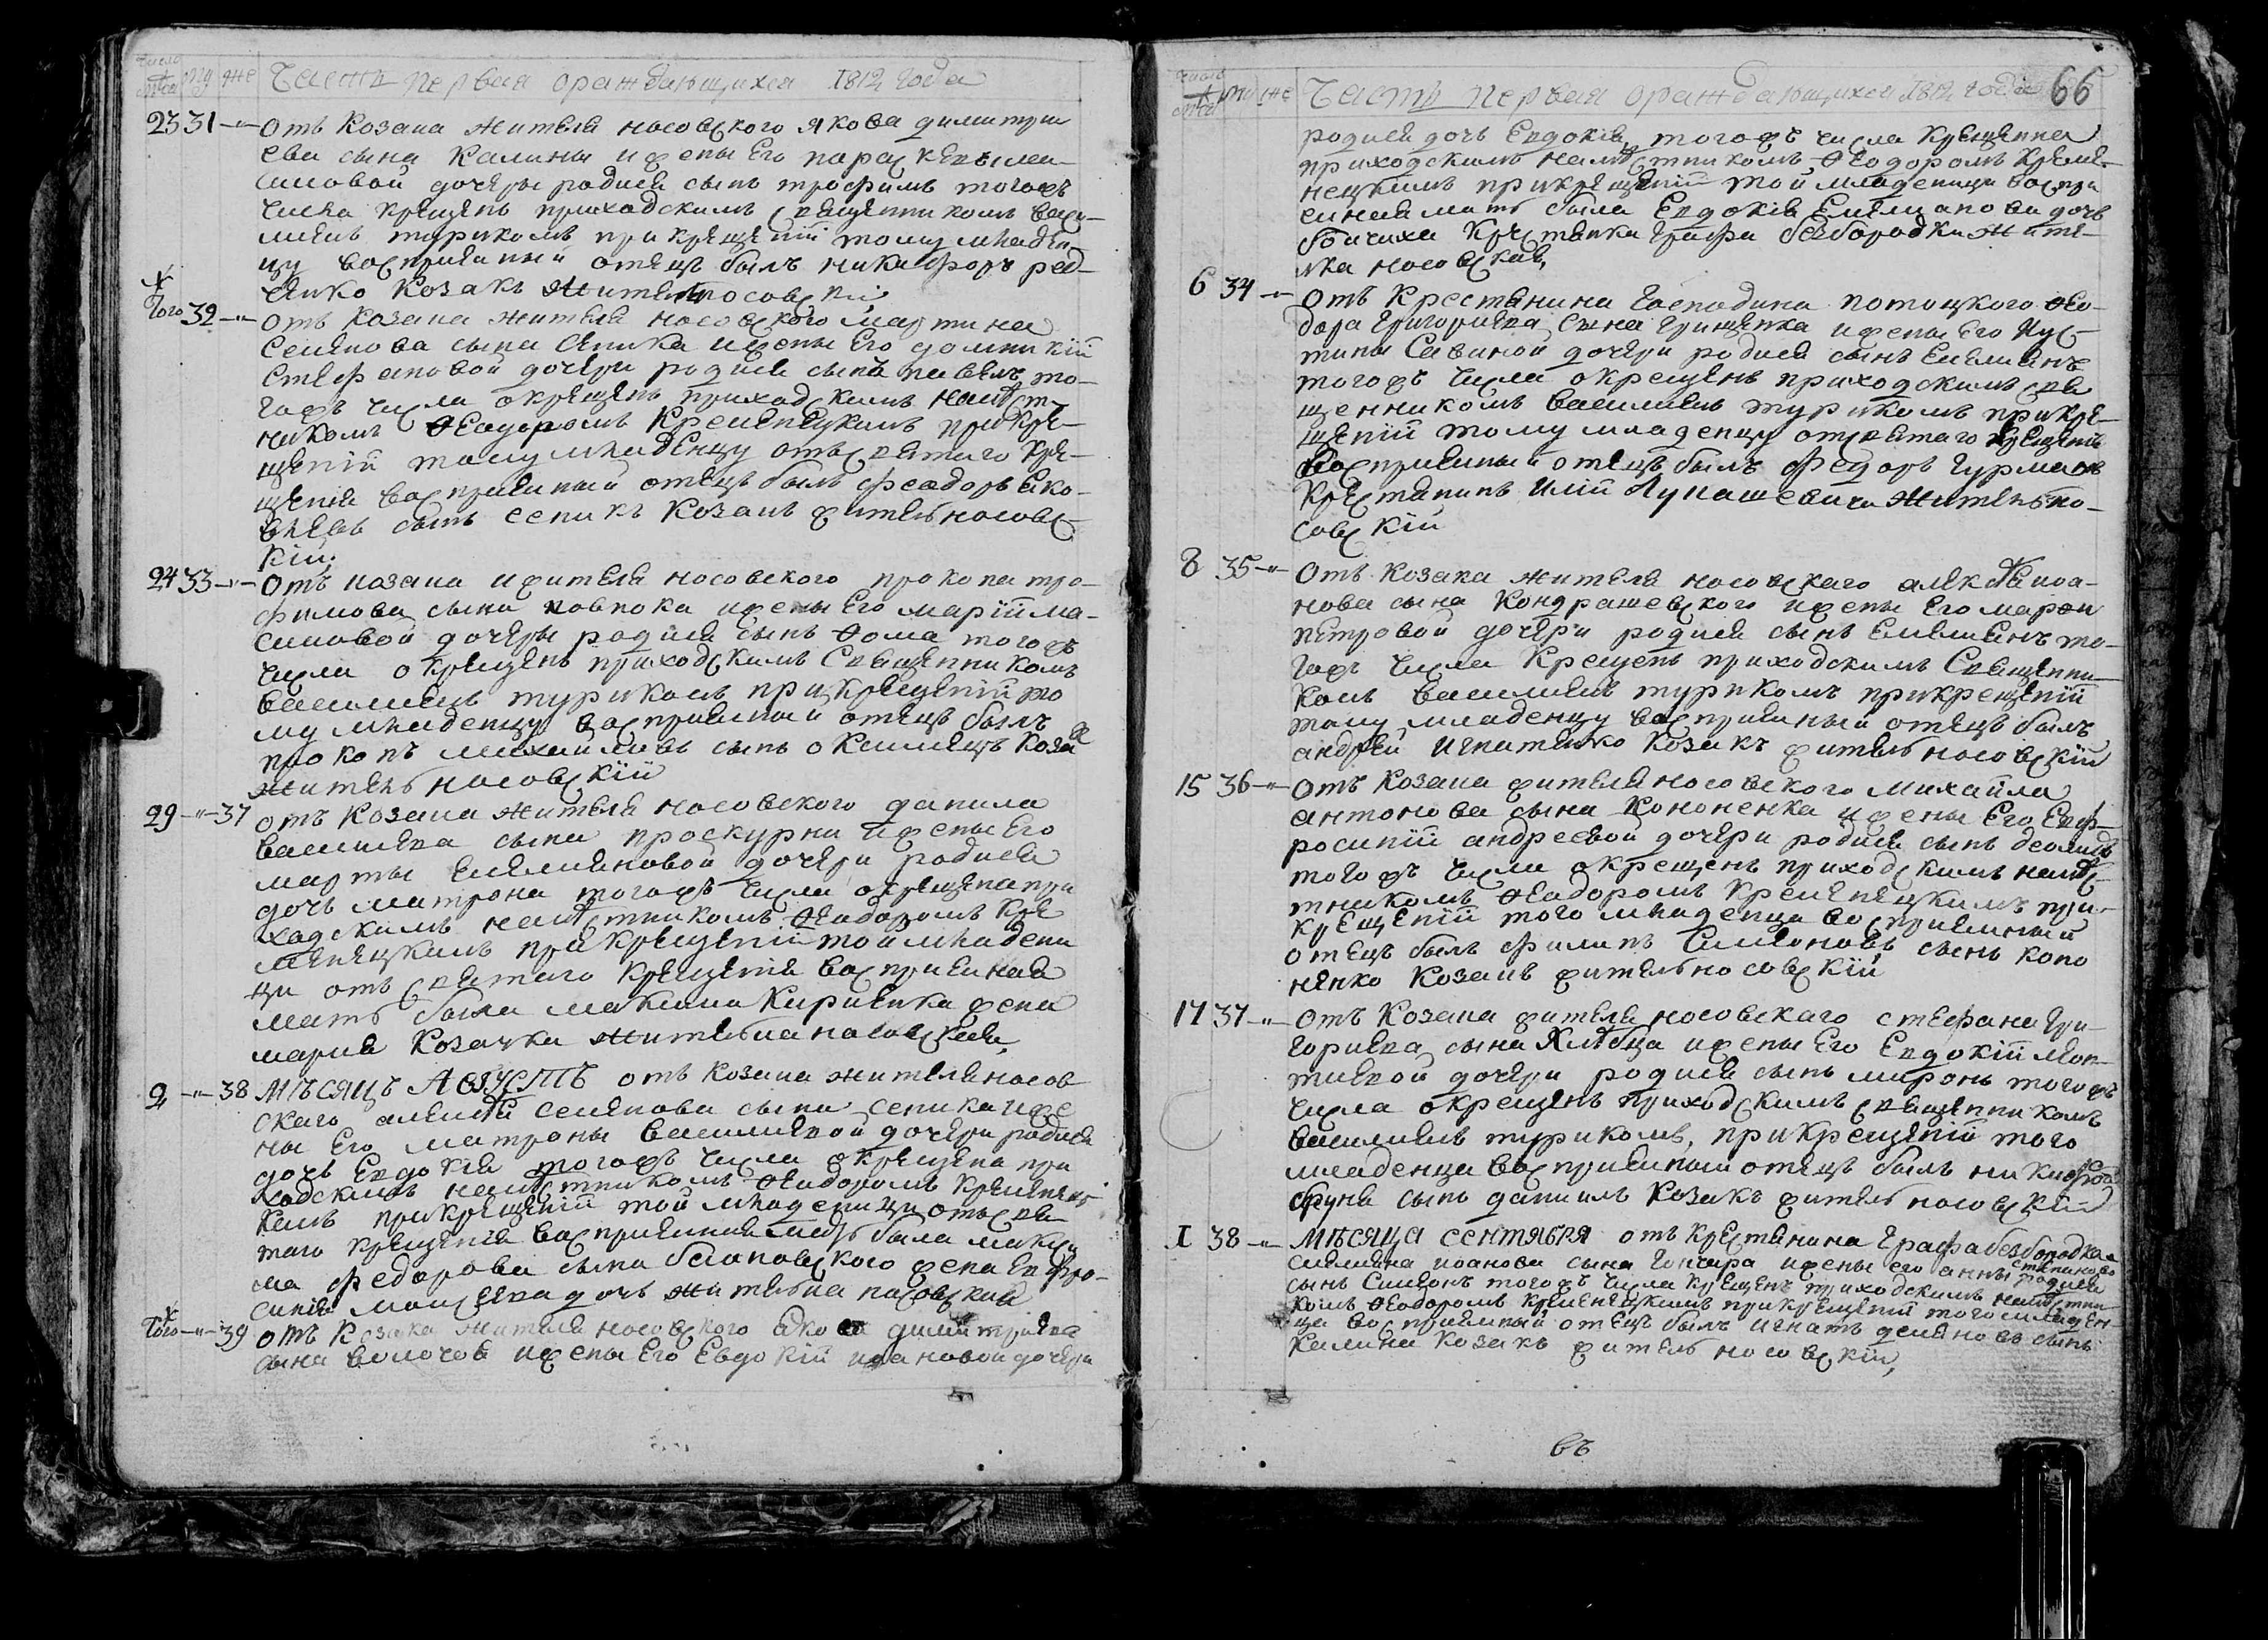 число мца му же Часть первая ораждающихся 1812 Года
23 31 -"- Отъ Козака жителя носовского Якова димитри
ева сына Калины и жены Его параскевы ма-
симовой дочеры родися сынъ трофимъ тогожъ
числа крещенъ приходскимъ священникомъ васи-
лиемъ туриком при крещеніи тому младен-
цу восприемный отецъ былъ никифоръ ред-
Козакъ житель носовскій
Того ж 32 -"- отъ козака жителя носовского мартина
Семенова сына Сепика и жены Его домникіи
Стефановой дочери родися сынъ павелъ то-
гожъ числа окрещенъ приходскимъ намѣст-
никомъ Ѳеодоромъ Кременецкимъ при кре-
щеніи тому младенцу отъ святого кре-
щенія восприемный отецъ былъ феодоръ яко-
влевъ сынъ сепикъ Козакъ житель носовс-
кій;
24 33 -"- Отъ козака и жителя носовского прокопа тро-
фимова сына ковпока и жены Его маріи ма-
симовой дочеры родися сынъ Ѳома тогожъ
числа окрещенъ приходскимъ Священникомъ
василиемъ турикомъ при крещеніи то
му младенцу восприемный отецъ былъ
прокопъ михайловъ сынъ Козак
житель носовскій
29 -"- 37 отъ Козака жителя носовского данила
василиева сына проскурни и жены Его
марты Емелияновой дочери родися
дочь матрона тогожъ числа окрещена при
ходскимъ намѣстникомъ Ѳеодоромъ Кре
менецкимъ при крещеніи той младени
ци отъ святаго крещенія восприемная
мать была Кириенка жена
мария Козачка жителька носовская,
2 -"- 38 Мѣсяцъ Августъ отъ козака жителя носов
скаго алексѣя семенова сына сепика и же
ны Его матроны василиевой дочери родися
дочь Евдокія тогожъ числа окрещена при
ходскимъ намѣстникомъ Ѳеодоромъ Кременец
кимъ при крещеніи той младеници отъ свя-
таго крещенія восприемная мать была макси
ма федорова сына жена Евфро-
синія дочь жителька носовская
Того ж -"- 39 отъ козака жителя носовского якова димитриева
сына и жены Его Евдокіи ивановой дочери
число мца му же Часть первая ораждающихся 1812 года 66
родися дочь Евдокія тогожъ числа Крещенна
приходскимъ намѣстникомъ Ѳеодоромъ Креме-
нецкимъ при крещеніи той младеници воспри
емная мать была Евдокія Емелианова дочь
Крестянка Графа безбородки жите-
лка носовская,
6 34 -"- Отъ Крестянина Господина потоцкого Ѳео-
дора Григориева Сына Грищенка и жены Его Иус-
тины Савиной дочери родися сынъ Емелианъ
тогожъ числа окрещенъ приходскимъ свя
щенникомъ василиемъ турикомъ при кре-
щеніи тому младенцу от святаго крещенія
восприемный отецъ былъ федоръ Гурманъ
Крестянинъ Иліи Лукашевича житель но-
совскій
8 35 -"- Отъ Козака жителя носовскаго алексѣя иоа-
нова сына Кондрашевского и жены Его марфи
петровой дочери родися сынъ Емелианъ то-
гожъ числа Крещенъ приходскимъ Священни-
комъ василиемъ турикомъ при крещеніи
тому младенцу восприемный отецъ былъ
андрей Игнатенко Козакъ житель носовскій
15 36 -"- Отъ Козака жителя носовского михайла
антонова сына Кононенка и жены Его Евф-
росиніи андреевой дочери родися сынъ деомидъ
тогожъ числа окрещенъ приходскимъ намѣс-
тникомъ Ѳеодоромъ Кременецкимъ при
крещеніи того младенца восприемный
отецъ былъ филипъ Симеоновъ сынъ коно
ненко Козакъ житель носовскій
17 37 -"- Отъ Козака жителя носовскаго стефана Гри-
гориева сына Хлѣбца и жены Его Евдокіи
дочери родися сынъ миронъ тогожъ
числа окрещенъ приходскимъ священникомъ
василиемъ турикомъ, при крещеніи того
младенца восприемный отецъ былъ
сынъ даниилъ Козакъ житель носовскій
1 38 -"- Мѣсяца Сентября отъ крестянина Графа безбородка
Емелиана иоанова сына Гончара и жены его анны степановой родися
сынъ Симеонъ тогожъ числа крещенъ приходскимъ намѣстни
комъ Ѳеодоромъ Кременецкимъ при крещеніи того младен-
ца восприемный отецъ былъ игнатъ демяновъ сынъ
Калина козакъ житель носовскій,
въ